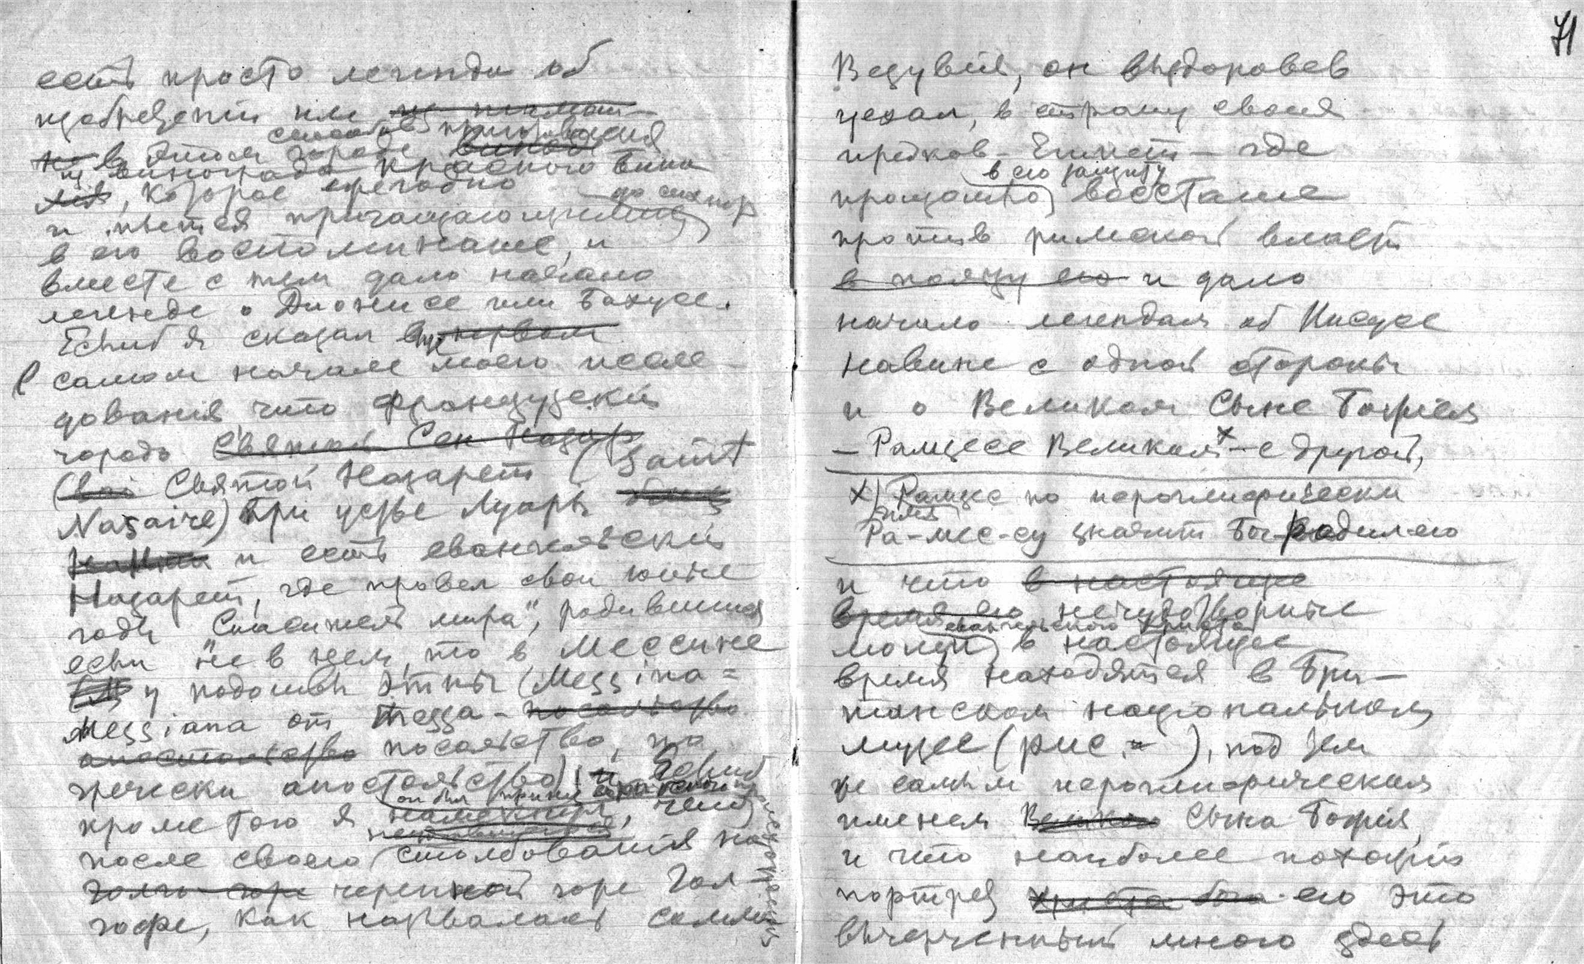 есть просто легенда об
изобрещении им
способов приготовления
в этом городе
из винограда красного вина
, которое ежегодно
до сих пор
и пьется причащающимися
в его воспоминание, и
вместе с тем дало начало
легенде о Дионисе или Бахусе.
Еслиб я сказал в первом
самом начале моего иссле-
дования что французский
город Святой Сен Назар
Святой Назарет (Saint
Nazaire) при устье Луары
и есть евангельский
Назарет, где провел свои юные
годы "Спаситель мира", родившийся
если не в нем, то в Мессине
у подошвы Этны (Messina =
Messiana от Messa - посольство
апостольство посольство, по
гречески апостольство) и еслиб
он был принят
кроме того я намекнул, что
после своего столбования на
черепной горе Гол-
гофе, как называлась сама
71
Везувия, он выздоровев
уехал, в страну своих
предков - Египет - где
в его защиту
произошло восстание
против римской власти
в пользу его и дало
начало легендам об Иисусе
Навине с одной стороны
и о Великом Сыне Божием
- Рамзесе Великом x - с другой,
x) Рамзес по иероглифически
Ра-мес-су значит Бог родил его
и что в настоящее
время его нечудотворные
евангельского Христа
мощи в настоящее
время находятся в Бри-
танском национальном
музее (рис. ), под тем
же самым иероглифическим
именем Сына Божия,
и что наиболее похожий
портрет Христа его это
вычерченный мною здесь